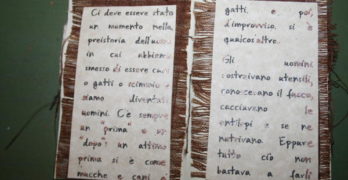 Ci deve essere stato
un momento nella
preistoria dell'uomo
in cui abbiamo
smesso di essere cani
o gatti o scimmie e
siamo diventati
uomini. C'è sempre
un "prima" e un
"dopo": un attimo
prima si è come
mucche e cani
gatti, e poi,
d'improvviso, si è
qualcos'altro.
Gli uomini
costruivano utensili,
conoscevano il fuoco,
cacciavano le
antilopi e se ne
nutrivano. Eppure
tutto ciò non
bastava a farli